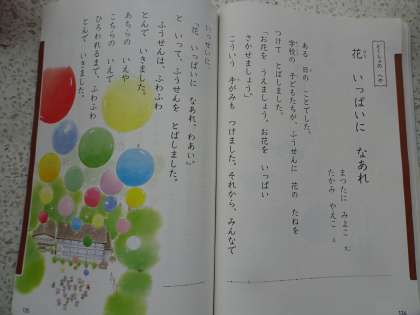 どくしょの へや
花 いっぱいに なあれ
まつたに みよこ 文
たかみ やえこ え
ある 日の ことでした。
学校の 子どもたちが、ふうせんに 花の たねを
つけて とばしました。
「お花を うえましょう。お花を いっぱい
さかせましょう。」
こういう 手がみも つけました。それから、みんなで
いっせいに、
「花、いっぱいに なあれ、わあい。」
と いって、ふうせんを とばしました。
ふうせんは、ふわふわ
とんで いきました。
あちらの いえや
こちらの いえで
ひろわれるまで、ふわふわ
とんで いきました。